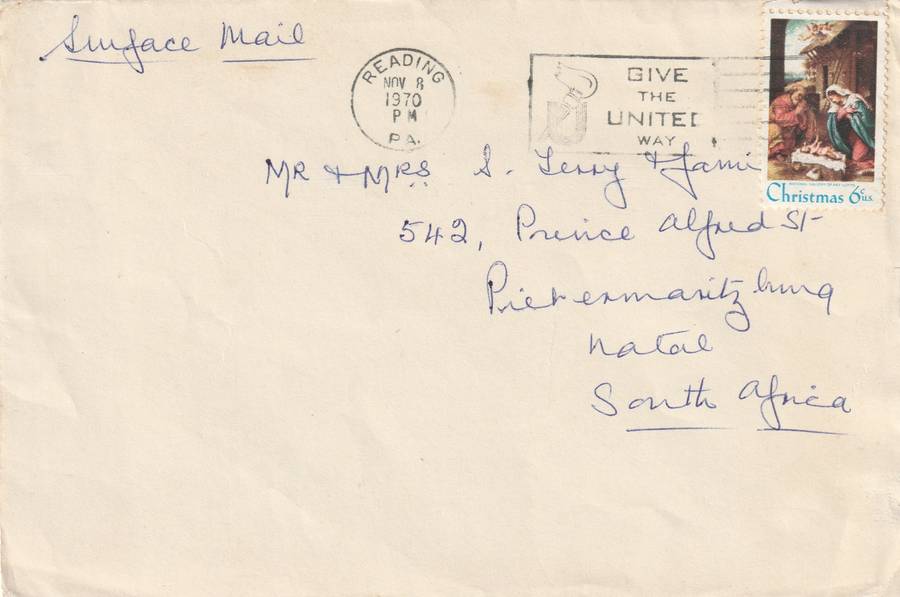 Surface Mail
READING
NOV 8
1970
PM
PA.
GIVE
THE
UNITED
WAY
NATIONAL GALLERY OF ART
Christmas 6c U.S.
MR & MRS S. Terry & Fami
542, Prince Alfred St
Pietermaritzburg
Natal
South Africa